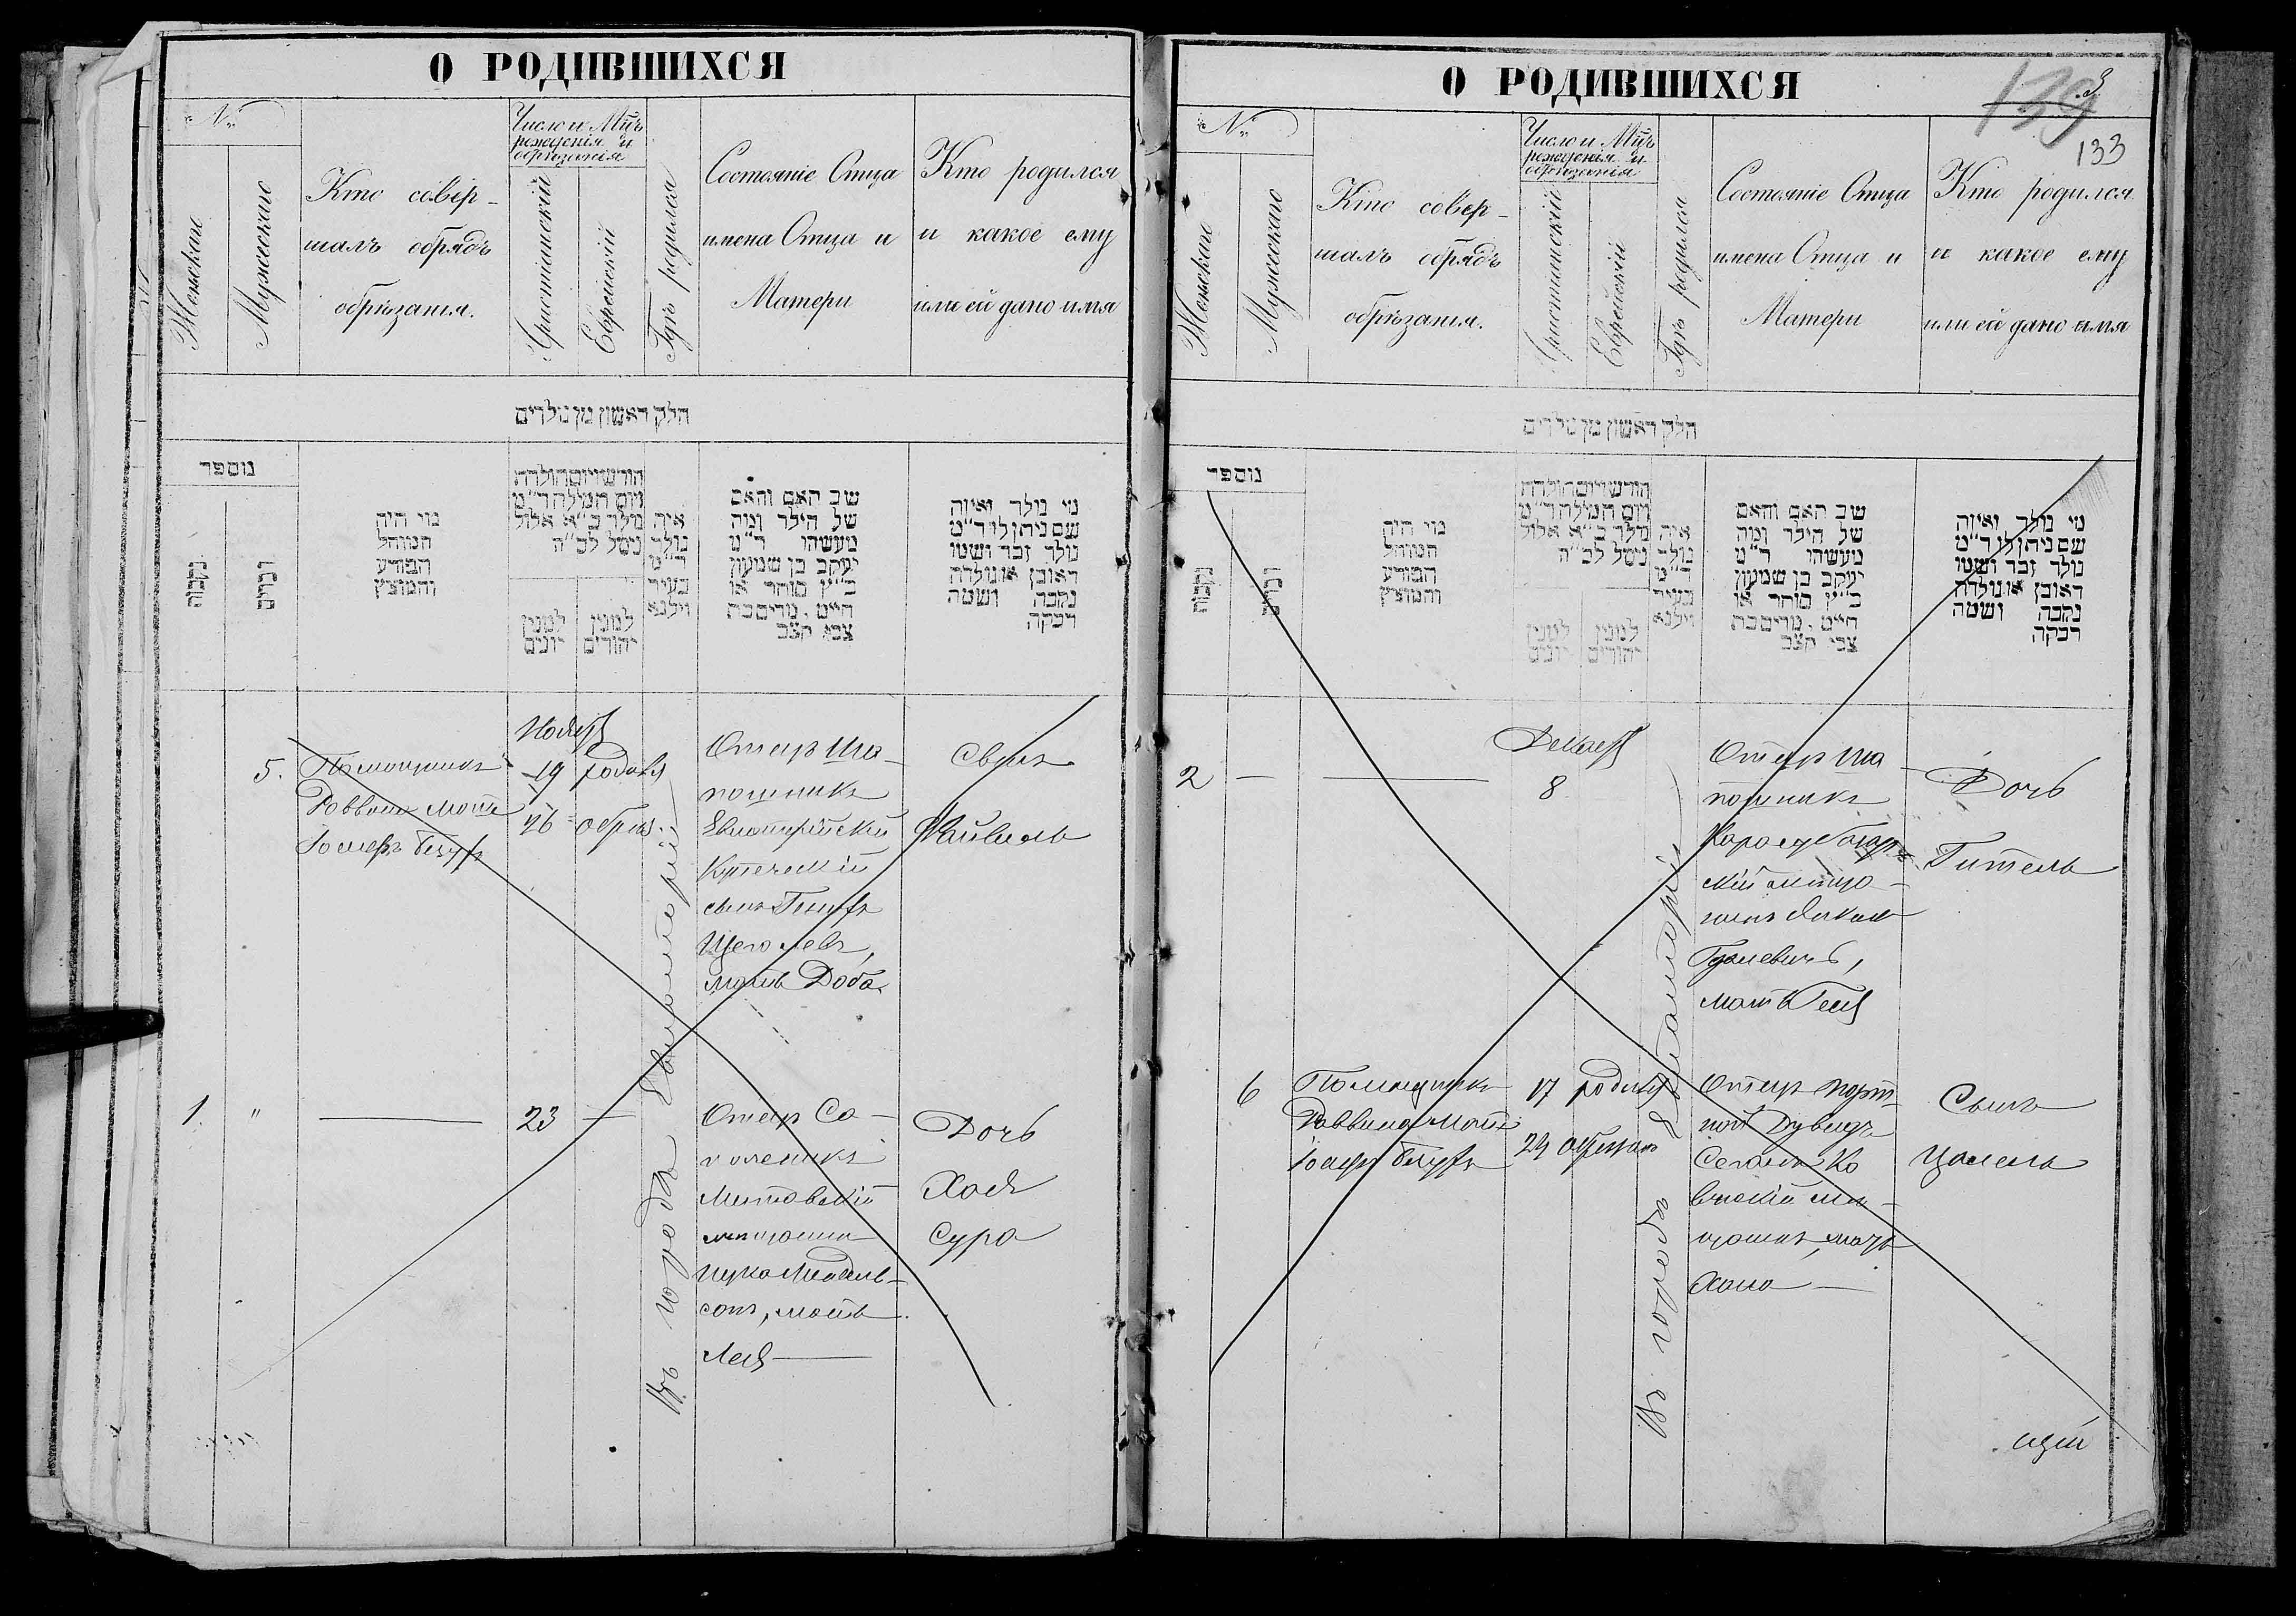 О РОДИВШИХСЯ
№
Женскаго
Мужескаго
Кто совер-
шалъ обрядъ
обрѣзанія.
Число и Мцъ
рожденія и
обрѣзанія
Христіанскій
Еврейскій
Гдѣ родился
Состояніе Отца
имена Отца и
Матери
Кто родился
и какое ему
или ей дано имя
חלק ראשון מן נולדים
מספר
נקבות
זכרים
מי היה
המוהל
הפורע
והמוצץ
חודש ויום הולדת
ויום המילה ד״מ
נולד כ״א אלול
נימל לכ״ה
למנין
יונים
למנין
יהודים
איה
נולד
ד״מ
בעיר
ווילנא
שב האם והאם
של הילד ומה
מעשהו ד״מ
יעקב בן שמעון
כ״ץ סוחר או
חייט. מרים בת
צבי קצב
מי נולד ואיזה
שם ניתן לו ד״מ
נולד זכר ושמו
ראובן או נולדה
נקבה ושמה
רבקה
5.
Помощникъ
Раввина
Ноября
19 родился
26 обрѣз.
Въ городѣ Евпаторіи
Отецъ Ша-
пошникъ
Евпаторійскій
Купеческій
сынъ
Щеголевъ,
мать Доба.
Сынъ
Файвель
1.
"
23
Отецъ Са-
пожникъ
Митавскій
мѣщанинъ
сонъ, мать
Лея
Дочь
Хая
Сура
О РОДИВШИХСЯ
139
3
133
№
Женскаго
Мужескаго
Кто совер-
шалъ обрядъ
обрѣзанія.
Число и Мцъ
рожденія и
обрѣзанія
Христіанскій
Еврейскій
Гдѣ родился
Состояніе Отца
имена Отца и
Матери
Кто родился
и какое ему
или ей дано имя
חלק ראשון מן נולדים
מספר
נקבות
זכרים
מי היה
המוהל
הפורע
והמוצץ
חודש ויום הולדת
ויום המילה ד״מ
נולד כ״א אלול
נימל לכ״ה
למנין
יונים
למנין
יהודים
איה
נולד
ד״מ
בעיר
ווילנא
שב האם והאם
של הילד ומה
מעשהו ד״מ
יעקב בן שמעון
כ״ץ סוחר או
חייט. מרים בת
צבי קצב
מי נולד ואיזה
שם ניתן לו ד״מ
נולד זכר ושמו
ראובן או נולדה
נקבה ושמה
רבקה
2
Декабря
8
Въ городѣ Евпаторіи
Отецъ Ша-
пошникъ
Карасубазар-
скій мѣща-
нинъ
Гуревичъ,
мать Геня
Дочь
Гитель
6
Помощникъ
Раввина
17 родился
24 обрѣзанъ
Отецъ порт-
ной Дувидъ
Ко-
венскій мѣ-
щанинъ, мать
Хана
Сынъ